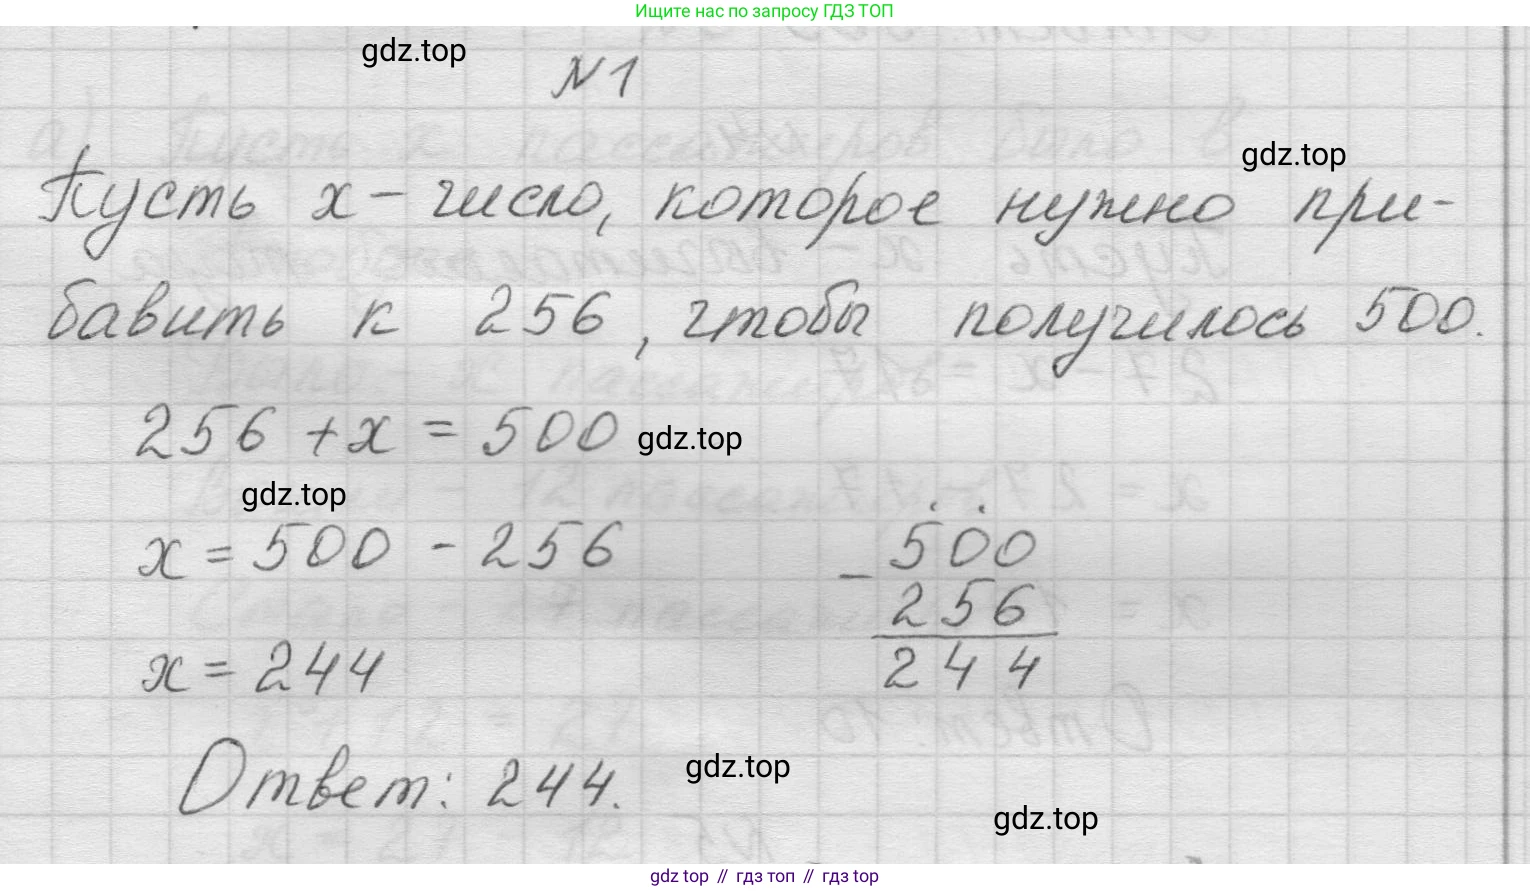 Ищите нас по запросу ГДЗ ТОП
gdz.top
N1
gdz.top
Пусть x - число, которое нужно при-
бавить к 256, чтобы получилось 500.
256 + x = 500
gdz.top
gdz.top
x = 500 - 256
x = 244
500
- 256
244
Ответ: 244.
gdz.top
gdz.top
gdz.top // гдз топ // гдз top